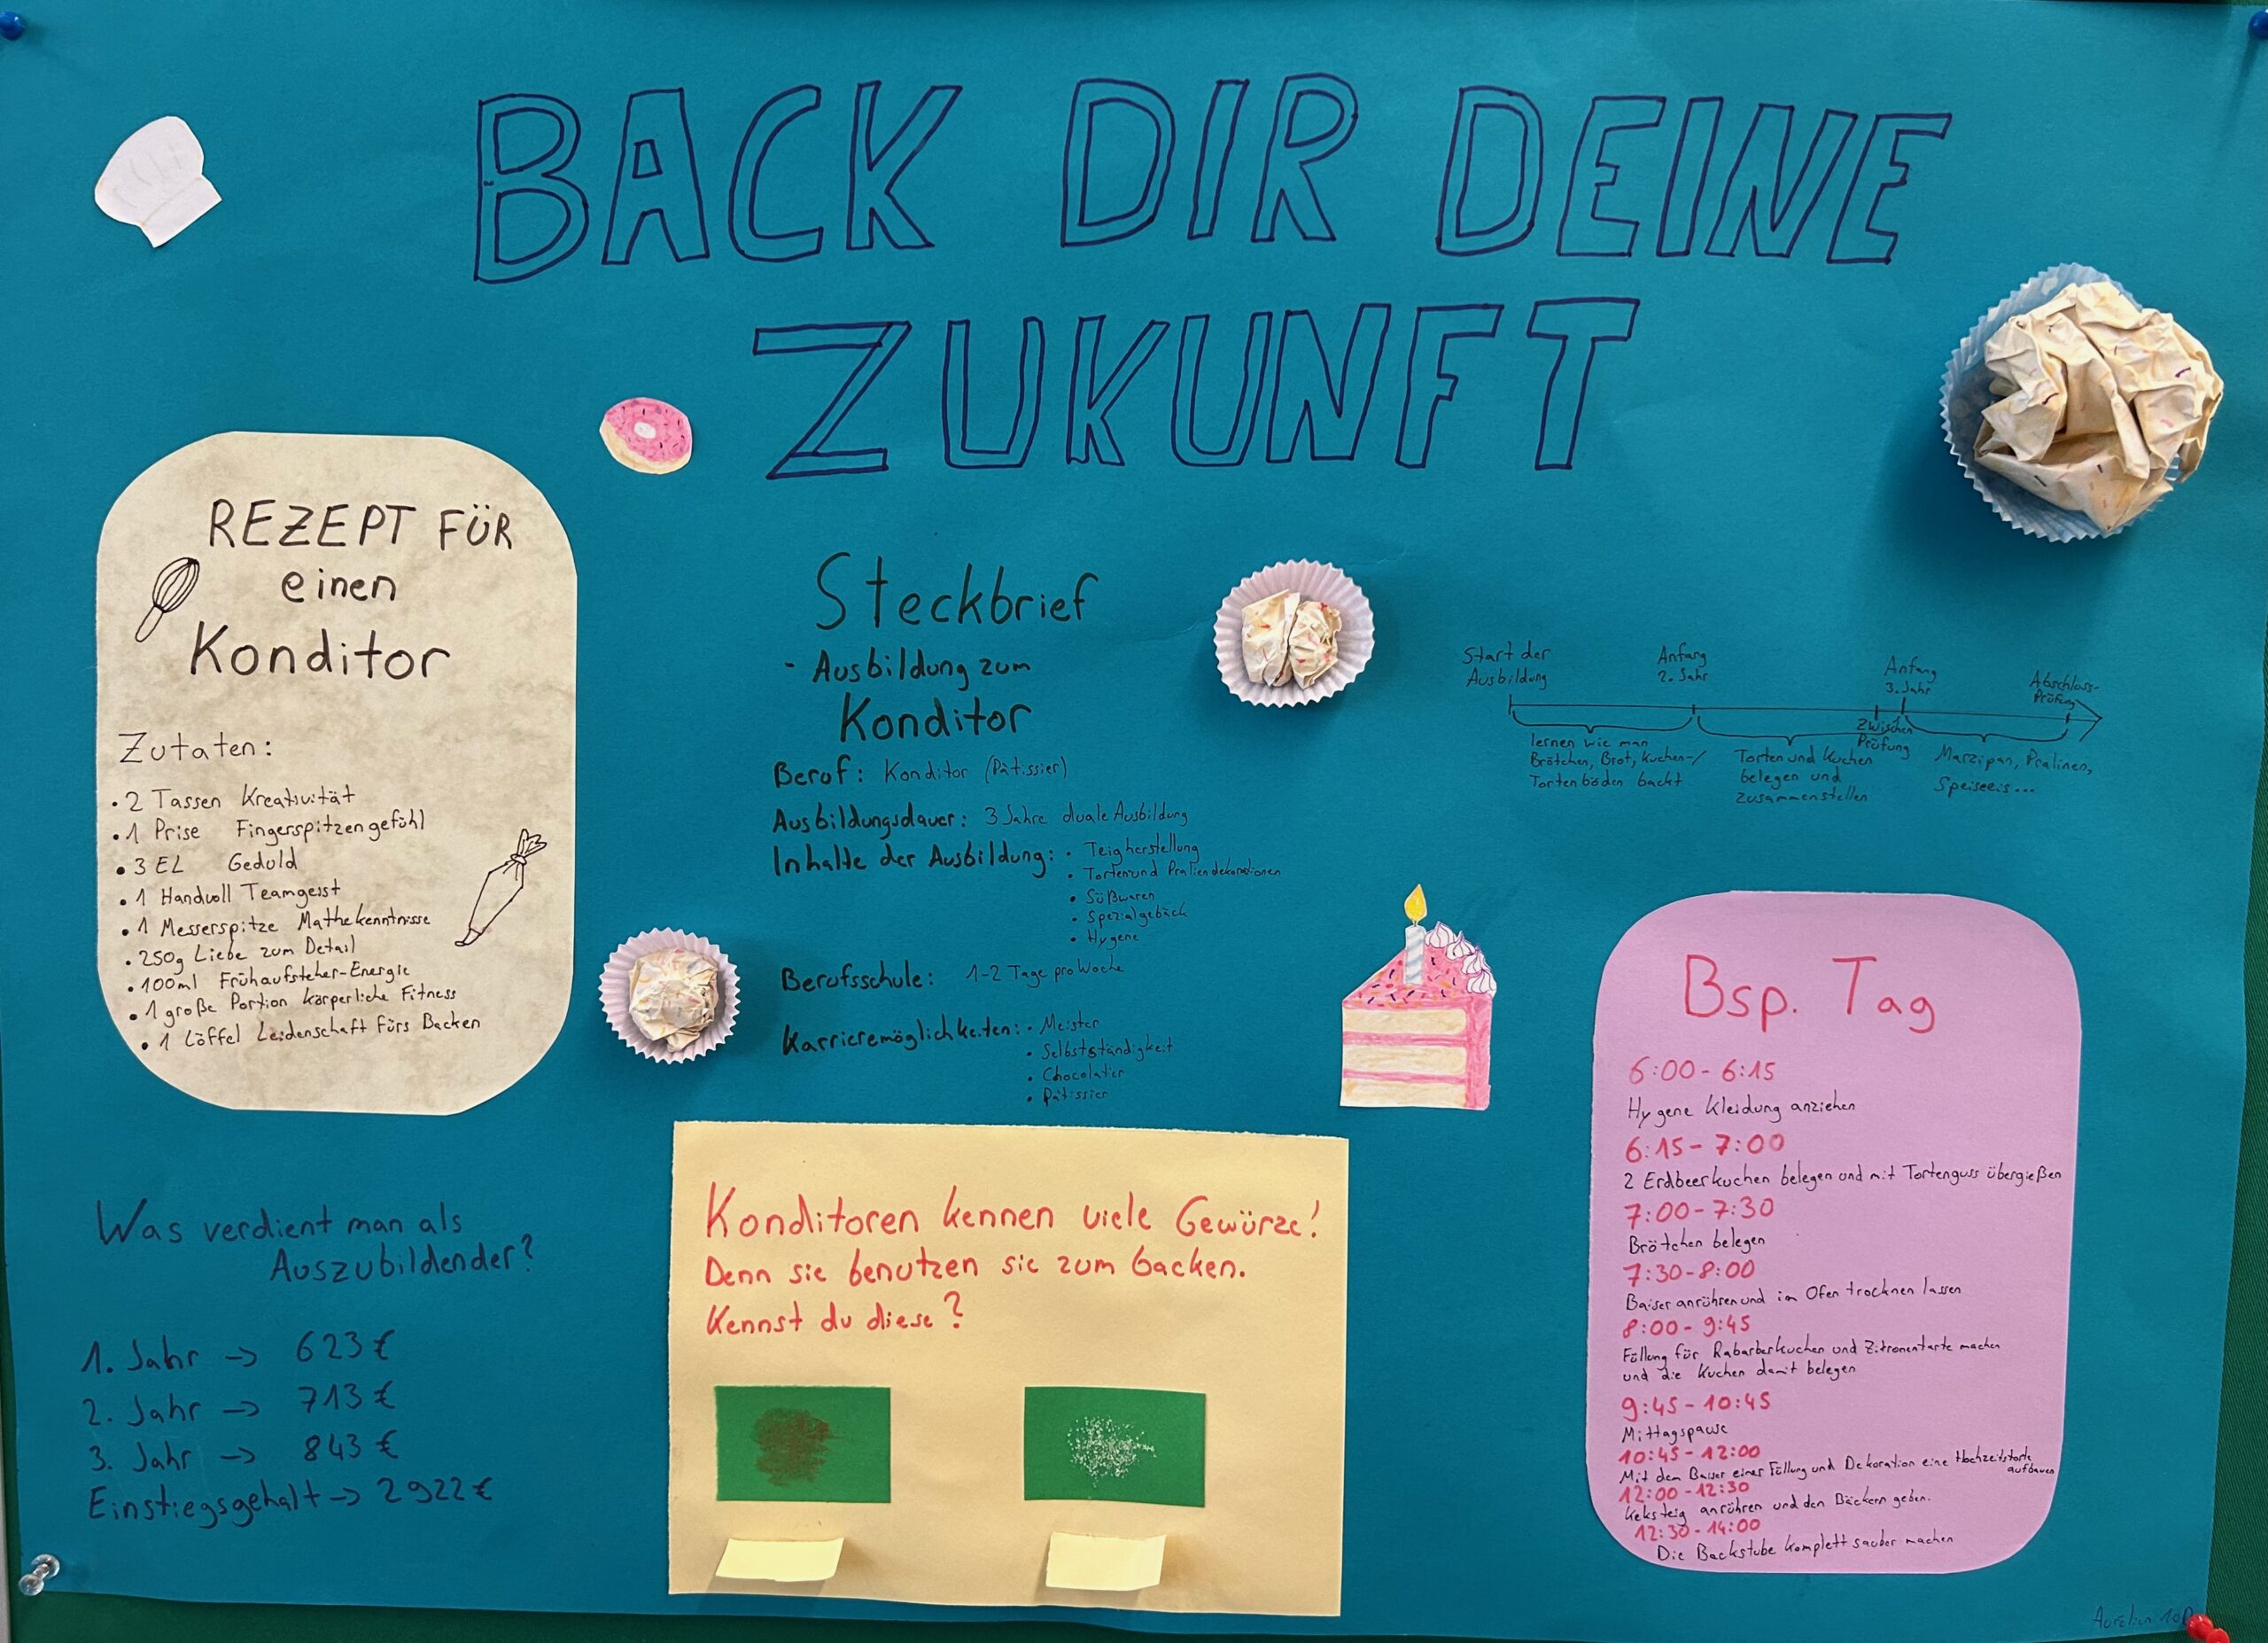 BACK DIR DEINE
ZUKUNFT
REZEPT FÜR
einen
Konditor
Zutaten:
• 2 Tassen Kreativität
• 1 Prise Fingerspitzengefühl
• 3 EL Geduld
• 1 Handvoll Teamgeist
• 1 Messerspitze Mathekenntnisse
• 250g Liebe zum Detail
• 100ml Frühaufsteher-Energie
• 1 große Portion körperliche Fitness
• 1 Löffel Leidenschaft fürs Backen
Was verdient man als
Auszubildender?
1. Jahr -> 623€
2. Jahr -> 713€
3. Jahr -> 843€
Einstiegsgehalt -> 2922€
Steckbrief
- Ausbildung zum
Konditor
Beruf: Konditor (Pâtissier)
Ausbildungsdauer: 3 Jahre duale Ausbildung
Inhalte der Ausbildung: • Teigherstellung
• Torten und Praliendekorationen
• Süßwaren
• Spezialgebäck
• Hygene
Berufsschule: 1-2 Tage pro Woche
Karrieremöglichkeiten: • Meister
• Selbstständigkeit
• Chocolatier
• Pâtissier
Konditoren kennen viele Gewürze!
Denn sie benutzen sie zum backen.
Kennst du diese?
Start der
Ausbildung
Anfang
2. Jahr
Anfang
3. Jahr
Abschluss-
Prüfung
Zwischen
Prüfung
lernen wie man
Brötchen, Brot, Kuchen-/
Tortenböden backt
Torten und Kuchen
belegen und
zusammenstellen
Marzipan, Pralinen,
Speiseeis...
Bsp. Tag
6:00 - 6:15
Hygene Kleidung anziehen
6:15 - 7:00
2 Erdbeerkuchen belegen und mit Tortenguss übergießen
7:00 - 7:30
Brötchen belegen
7:30 - 8:00
Baiser anrühren und im Ofen trocknen lassen
8:00 - 9:45
Füllung für Rabarberkuchen und Zitronentarte machen
und die Kuchen damit belegen
9:45 - 10:45
Mittagspause
10:45 - 12:00
Mit dem Baiser einer Füllung und Dekoration eine Hochzeitstorte
aufbauen
12:00 - 12:30
Keksteig anrühren und den Bäckern geben.
12:30 - 14:00
Die Backstube komplett sauber machen